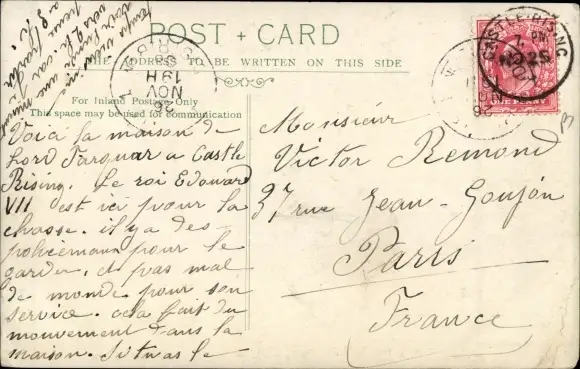 POST + CARD
THE ADDRESS TO BE WRITTEN ON THIS SIDE
For Inland Postage Only
This space may be used for communication
CASTLE-RISING
NO 25
19H
NOV
26
Voici la maison de
Lord Farquar a Castle
Rising. Le roi Edouard
VII est ici pour la
chasse. il y a des
policemans pour le
garder, et pas mal
de monde pour son
service. cela fait du
mouvement dans la
maison. Si tu as le
temps viens me
voir lundi une minute
vers 9h. car
Monsieur
Victor Remond
37 rue Jean-Goujon
Paris
France